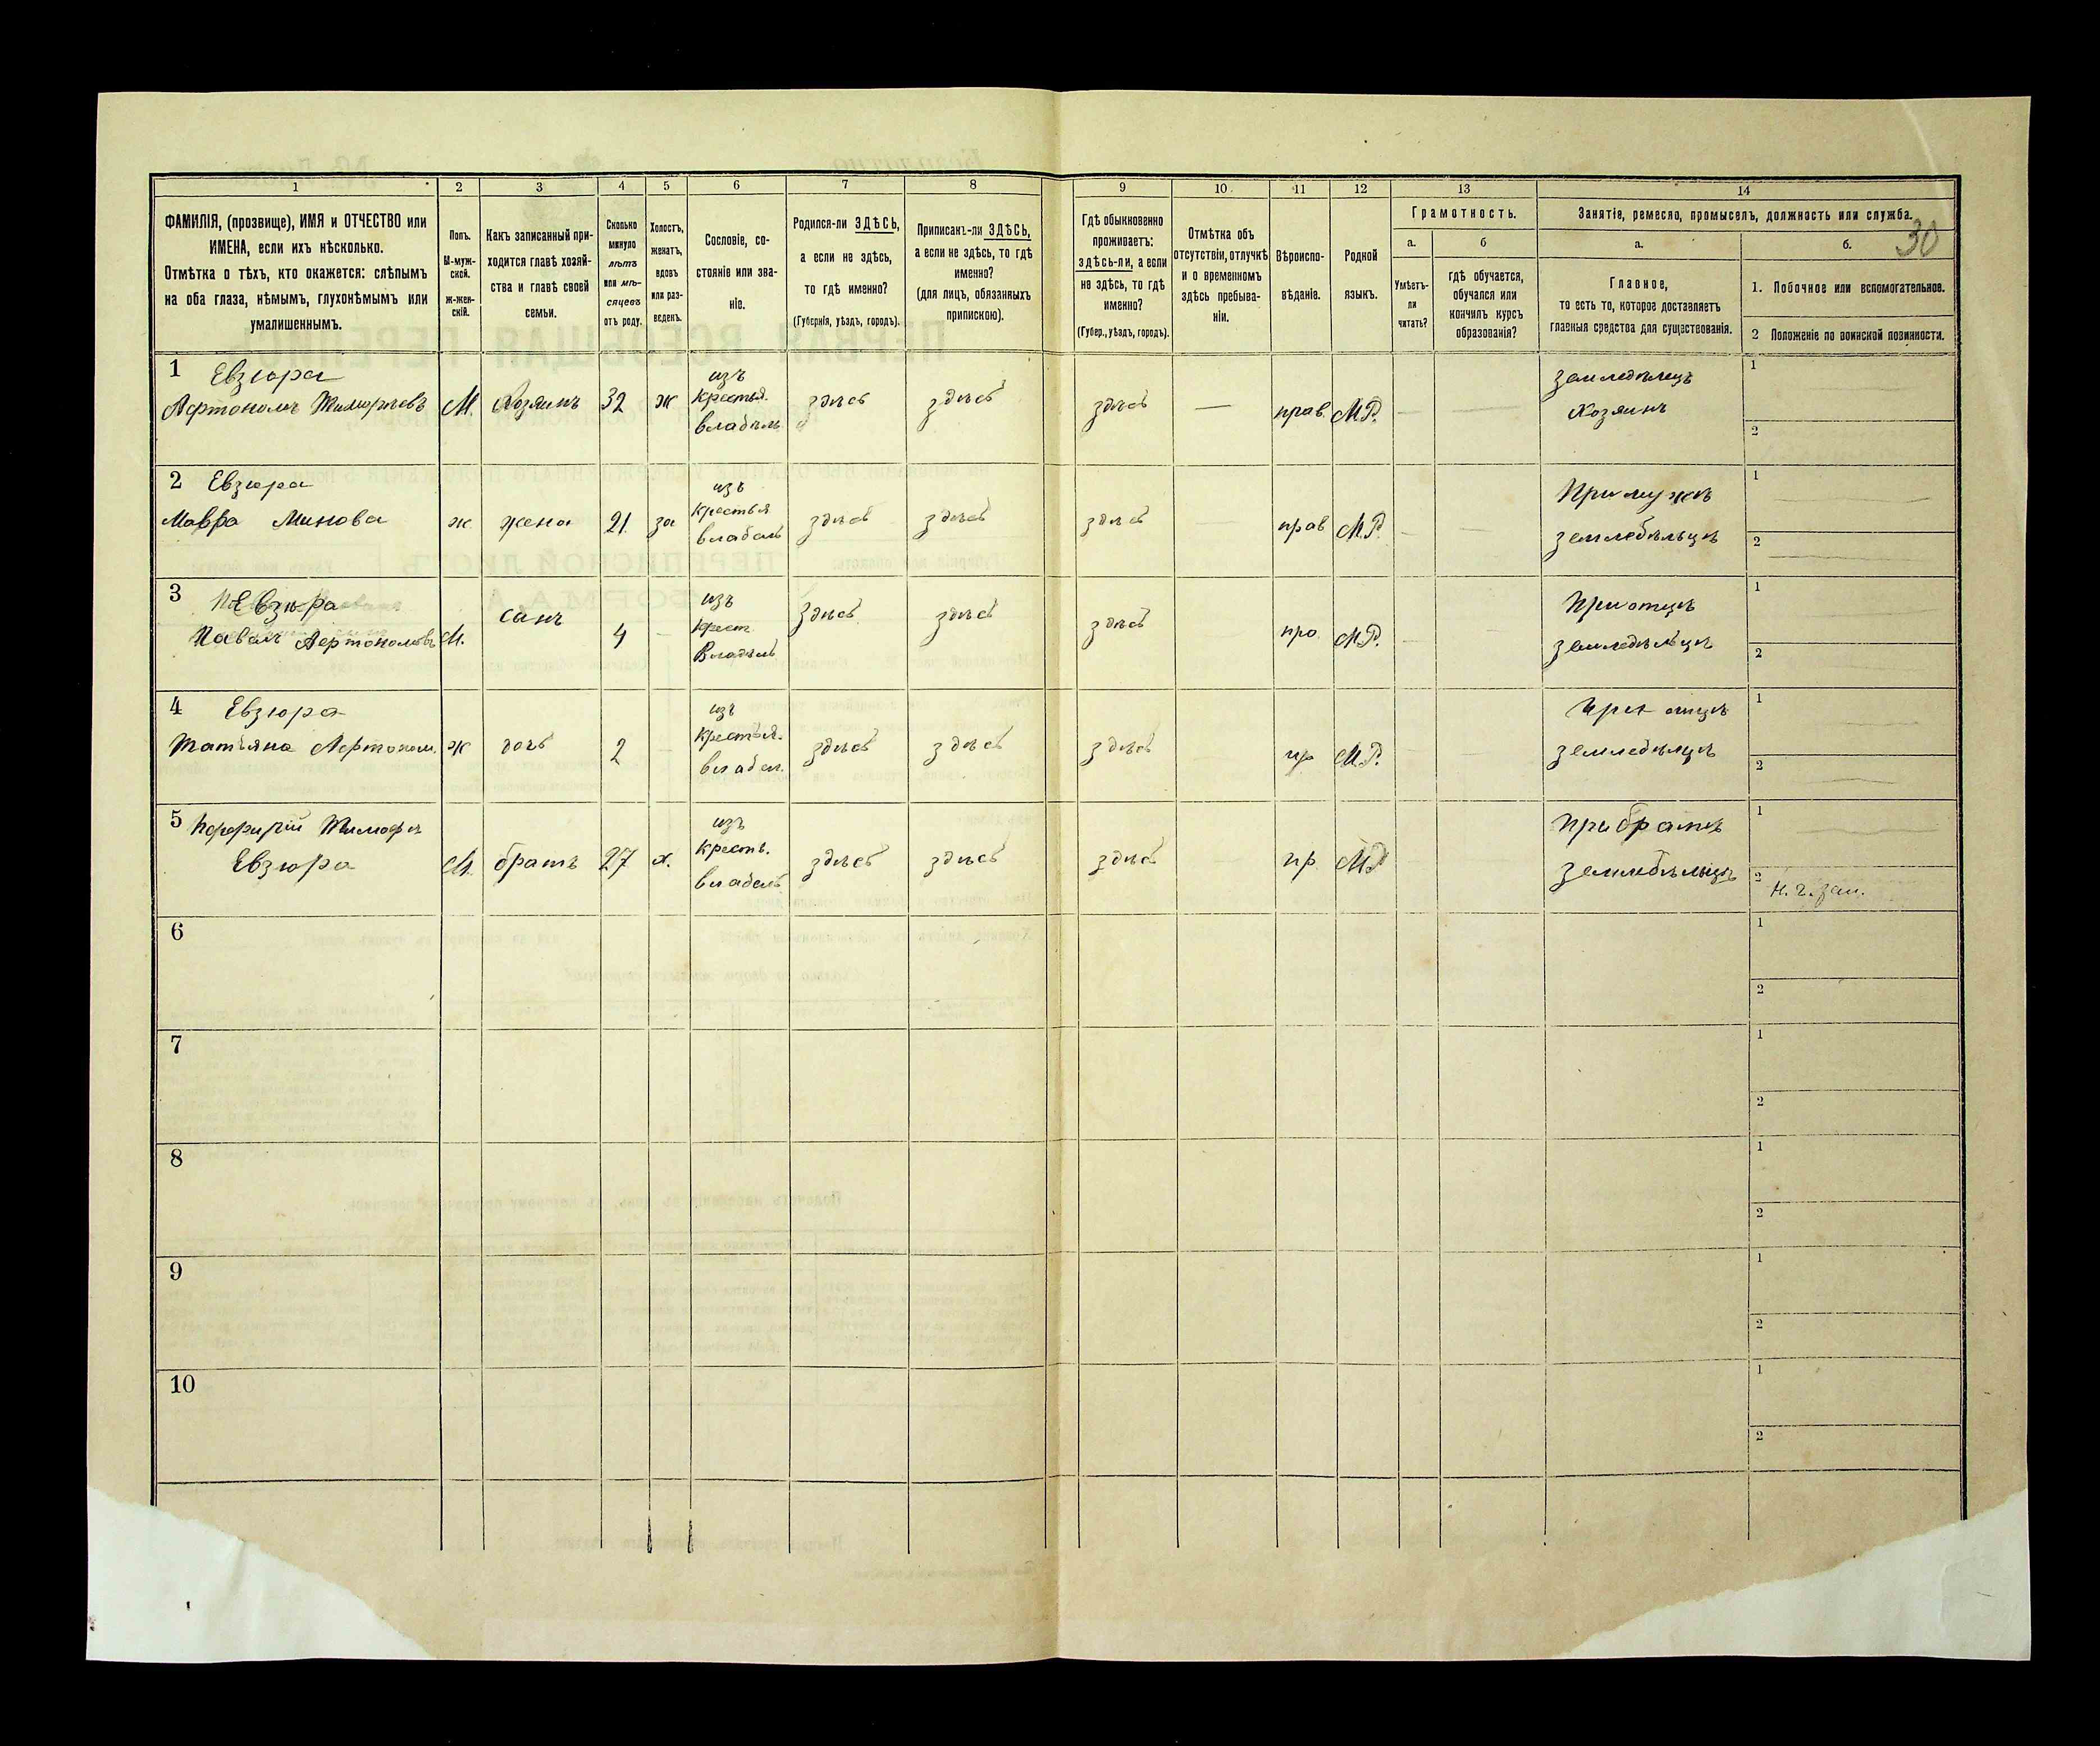 30
1 2 3 4 5 6 7 8 9 10 11 12 13 14
ФАМИЛІЯ, (прозвище), ИМЯ и ОТЧЕСТВО или
ИМЕНА, если ихъ нѣсколько.
Отмѣтка о тѣхъ, кто окажется: слѣпымъ
на оба глаза, нѣмымъ, глухонѣмымъ или
умалишеннымъ.
Полъ.
М-муж-
ской.
ж-жен-
скій.
Какъ записанный при-
ходится главѣ хозяй-
ства и главѣ своей
семьи.
Сколько
минуло
лѣтъ
или мѣ-
сяцевъ
отъ роду.
Холостъ,
женатъ,
вдовъ
или раз-
веденъ.
Сословіе, со-
стояніе или зва-
ніе.
Родился-ли ЗДѢСЬ,
а если не здѣсь,
то гдѣ именно?
(Губернія, уѣздъ, городъ).
Приписанъ-ли ЗДѢСЬ,
а если не здѣсь, то гдѣ
именно?
(для лицъ, обязанныхъ
припискою).
Гдѣ обыкновенно
проживаетъ:
здѣсь-ли, а если
не здѣсь, то гдѣ
именно?
(Губер., уѣздъ, городъ).
Отмѣтка объ
отсутствіи, отлучкѣ
и о временномъ
здѣсь пребыва-
ніи.
Вѣроиспо-
вѣданіе.
Родной
языкъ.
Грамотность.
а.
Умѣетъ-
ли
читать?
б
гдѣ обучается,
обучался или
кончилъ курсъ
образованія?
Занятіе, ремесло, промыселъ, должность или служба.
а.
Главное,
то есть то, которое доставляетъ
главныя средства для существованія.
б.
1. Побочное или вспомогательное.
2 Положеніе по воинской повинности.
1 Евзюра изъ земледѣлецъ 1
М. Хозяинъ 32 ж крестья. здѣсь здѣсь здѣсь — прав. М.Р. Хозяинъ
владѣль 2
2 Евзюра изъ При мужѣ 1
Мавра Минова ж жена 21 за крестья здѣсь здѣсь здѣсь прав М.Р.
владѣль земледѣльцѣ 2
3 Евзюра сынъ изъ здѣсь здѣсь здѣсь При отцѣ 1
М. 4 крест про. М.Р. земледѣльцѣ
владѣль 2
4 Евзюра изъ При отцѣ 1
Татьяна ж дочь 2 крестья. здѣсь здѣсь здѣсь пр М.Р. земледѣльцѣ
владѣл. 2
5 изъ При братѣ 1
Евзюра М. братъ 27 х. крестъ. здѣсь здѣсь здѣсь пр. М.Р земледѣльцѣ
владѣль 2
6 1
2
7 1
2
8 1
2
9 1
2
10 1
2